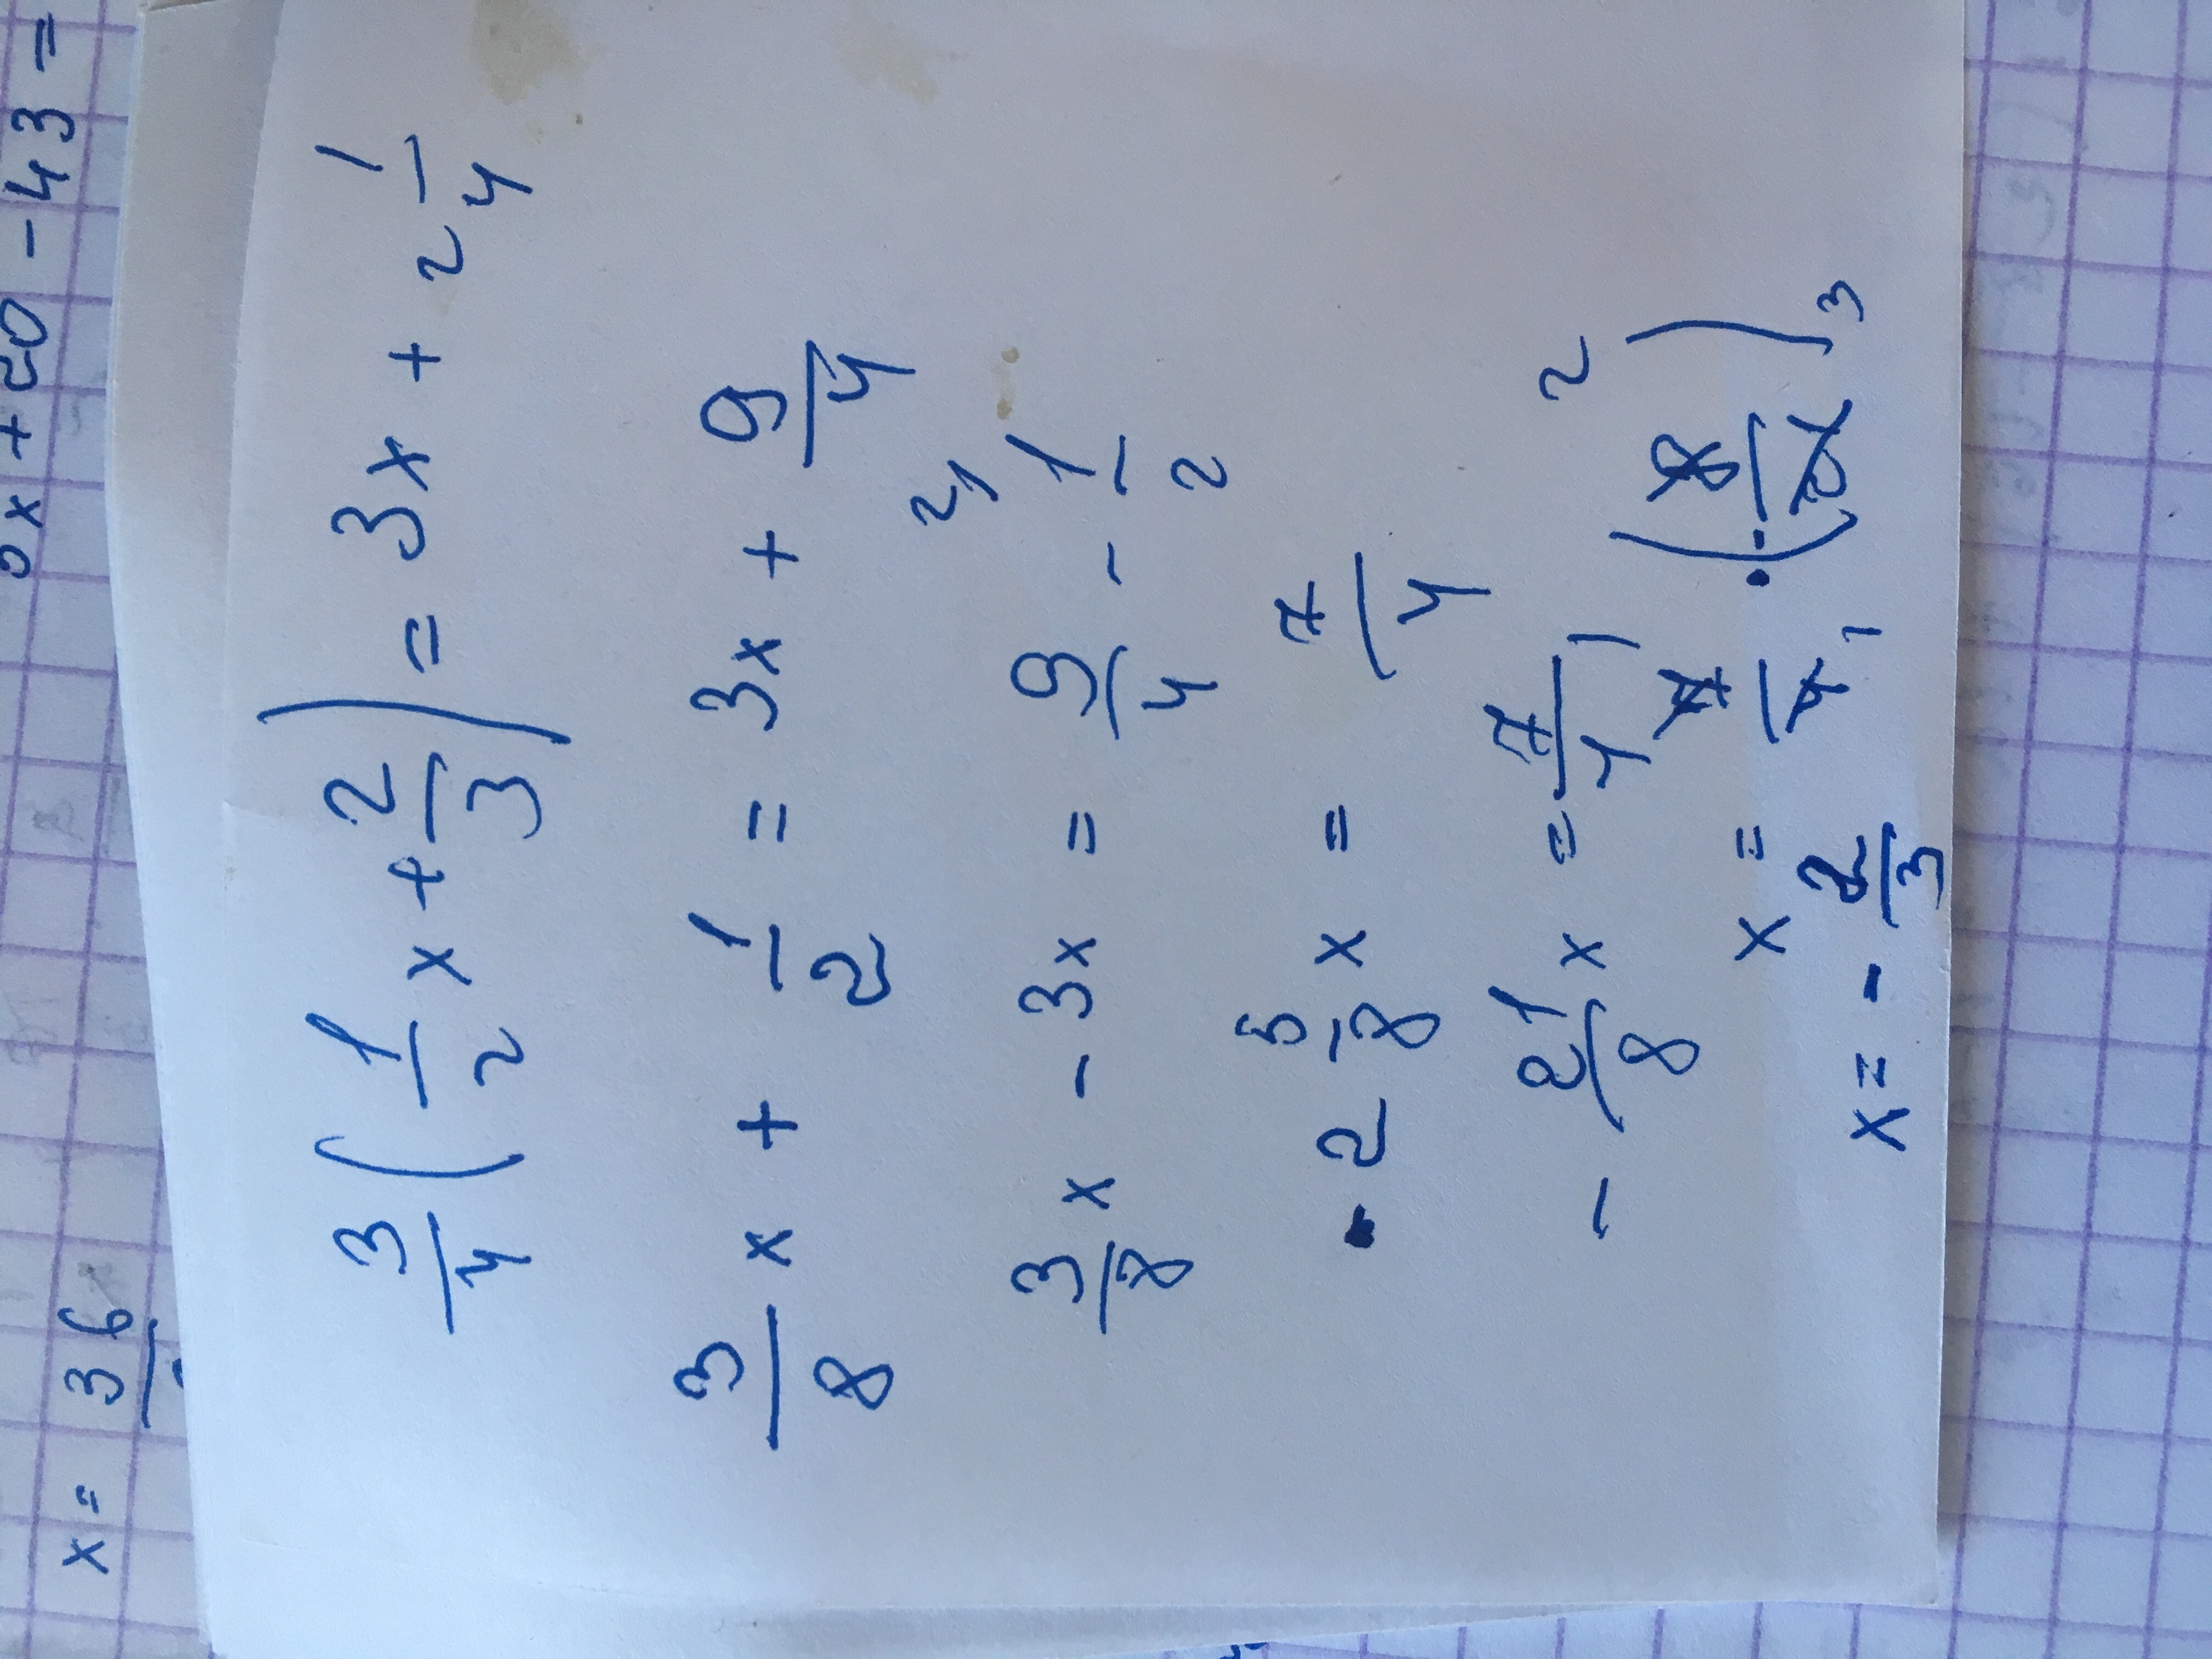 x + 20 - 43 =
x = 36
3/4 (1/2 x + 2/3) = 3x + 2 1/4
3/8 x + 1/2 = 3x + 9/4
3/8 x - 3x = 9/4 - 1/2 2)
- 2 5/8 x = 7/4
- 21/8 x = 7/4
x = 7/4 1 1 · (- 8/21) 2 3
x = - 2/3